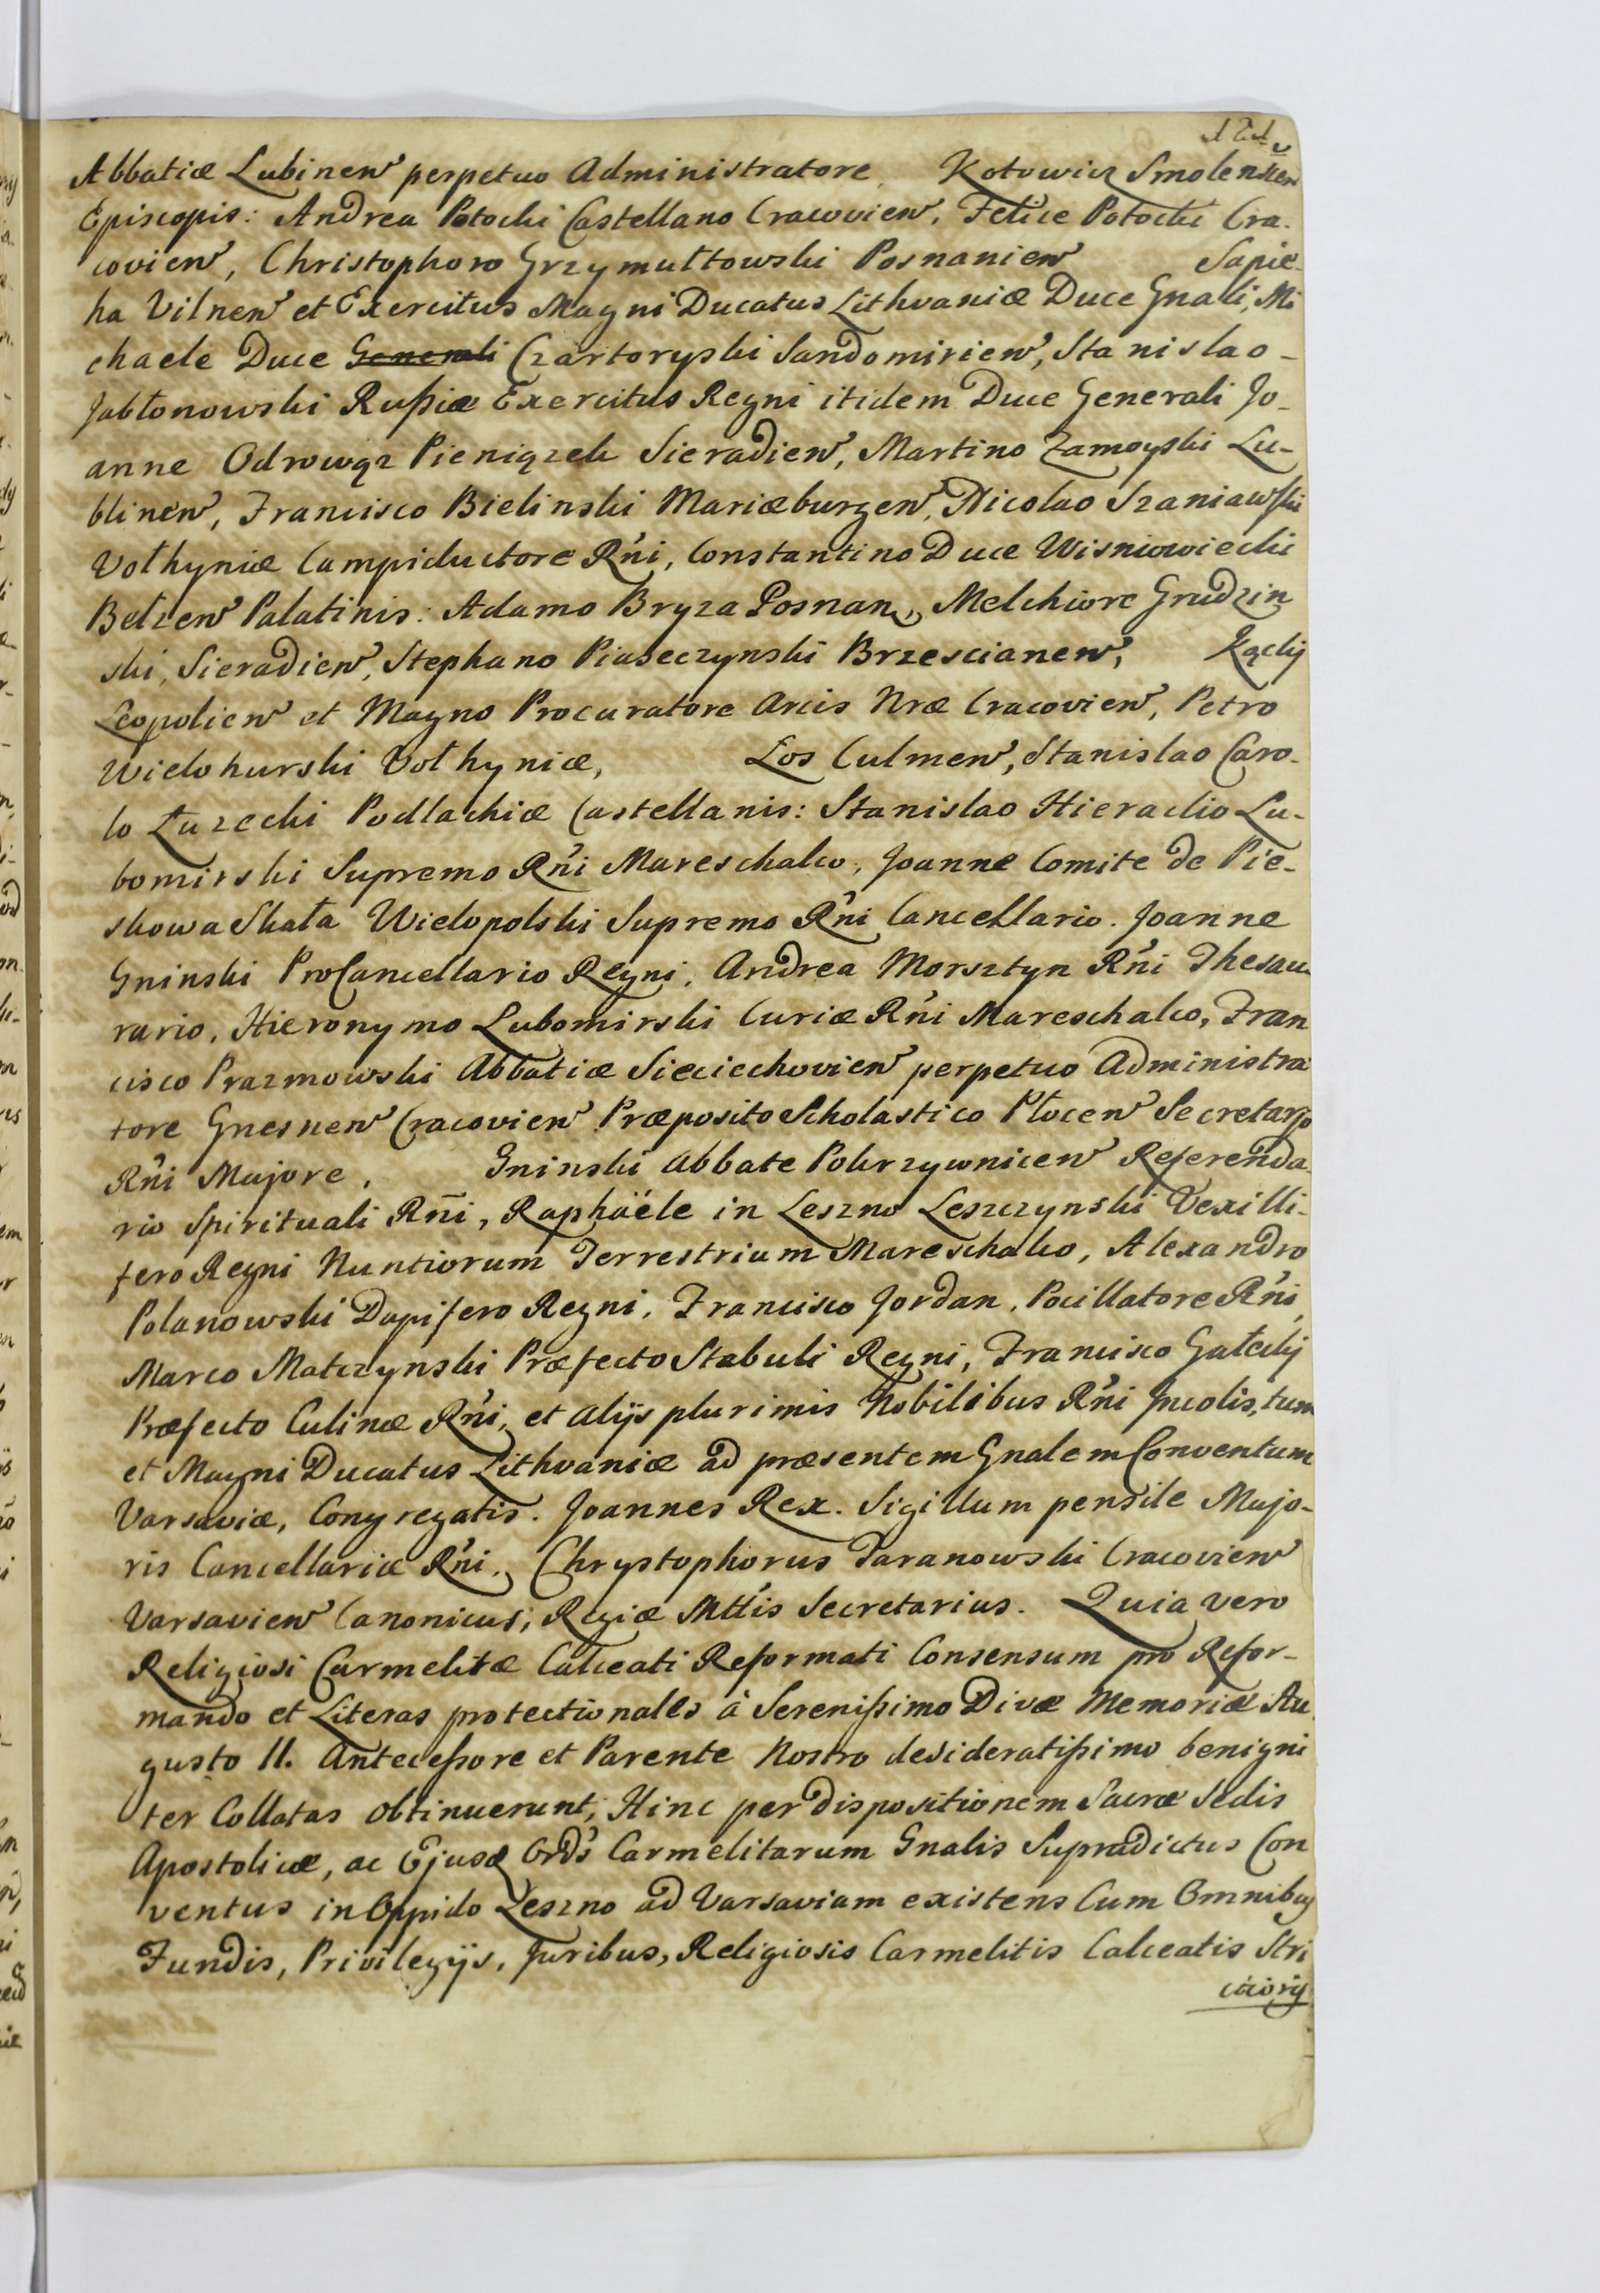 121
Abbatiæ Lubinen perpetuo Administratore, Kotowicz Smolenscen
Episcopis: Andrea Potocki Castellano Cracovien, Felice Potocki Cra-
covien, Christophoro Grzymułtowski Posnanien Sapie-
ha Vilnen et Exercitus Magni Ducatus Lithvaniæ Duce Gnali, Mi
chaele Duce Generali Czartoryski Sandomirien, Stanislao-
Jabłonowski Rußiæ Exercitus Regni itidem Duce Generali Jo-
anne Odrowąz Pieniązek Sieradien, Martino Zamoyski Lu-
blinen, Francisco Bielinski Mariæburgen, Nicolao Szaniawski
Vołhyniæ Campiductore Rni, Constantino Duce Wisniowiecki
Belzen Palatinis: Adamo Bryza Posnan, Melchiore Grudzin
ski, Sieradien, Stephano Piaseczynski Brzescianen, Kącki
Leopolien et Magno Procuratore Arcis Nræ Cracovien, Petro
Wielohurski Vołhyniæ, Łos Culmen, Stanislao Caro-
lo Łuzecki Podlachiæ Castellanis: Stanislao Hieraclio Lu-
bomirski Supremo Rni Mareschalco, Joanne Comite de Pie-
skowa Skała Wielopolski Supremo Rni Cancellario. Joanne
Gninski ProCancellario Regni, Andrea Morsztyn Rni Thesau-
rario, Hieronymo Lubomirski Curiæ Rni Mareschalco, Fran
cisco Prazmowski Abbatiæ Sieciechovien perpetuo Administra
tore Gnesnen Cracovien Præposito Scholastico Płocen Secretario
Rni Majore, Gninski Abbate Pokrzywnicen Referenda
rio Spirituali Rni, Raphaële in Leszno Leszczynski Vexilli-
fero Regni Nuntiorum Terrestrium Mareschalco, Alexandro
Polanowski Dapifero Regni, Francisco Jordan, Pocillatore Rni,
Marco Matczynski Præfecto Stabuli Regni, Francisco Gałecki
Præfecto Culinæ Rni, et alijs plurimis Nobilibus Rni Incolis, tum
et Magni Ducatus Lithvaniæ ad præsentem Gnalem Conventum
Varsaviæ, Congregatis. Joannes Rex. Sigillum pensile Majo-
ris Cancellariæ Rni, Chrystophorus Taranowski Cracovien
Varsavien Canonicus, Regiæ Mttis Secretarius. Quia vero
Religiosi Carmelitæ Calceati Reformati Consensum pro Refor-
mando et Literas protectionales à Serenißimo Divæ Memoriæ Au
gusto II. Anteceßore et Parente Nostro desideratißimo benigni
ter Collatas obtinuerunt, Hinc per dispositionem Sacræ Sedis
Apostolicæ, ac Ejusd Ordis Carmelitarum Gnalis Supradictus Con
ventus in Oppido Leszno ad Varsaviam existens Cum Omnibus
Fundis, Privilegijs, Juribus, Religiosis Carmelitis Calceatis Stri
ctioris